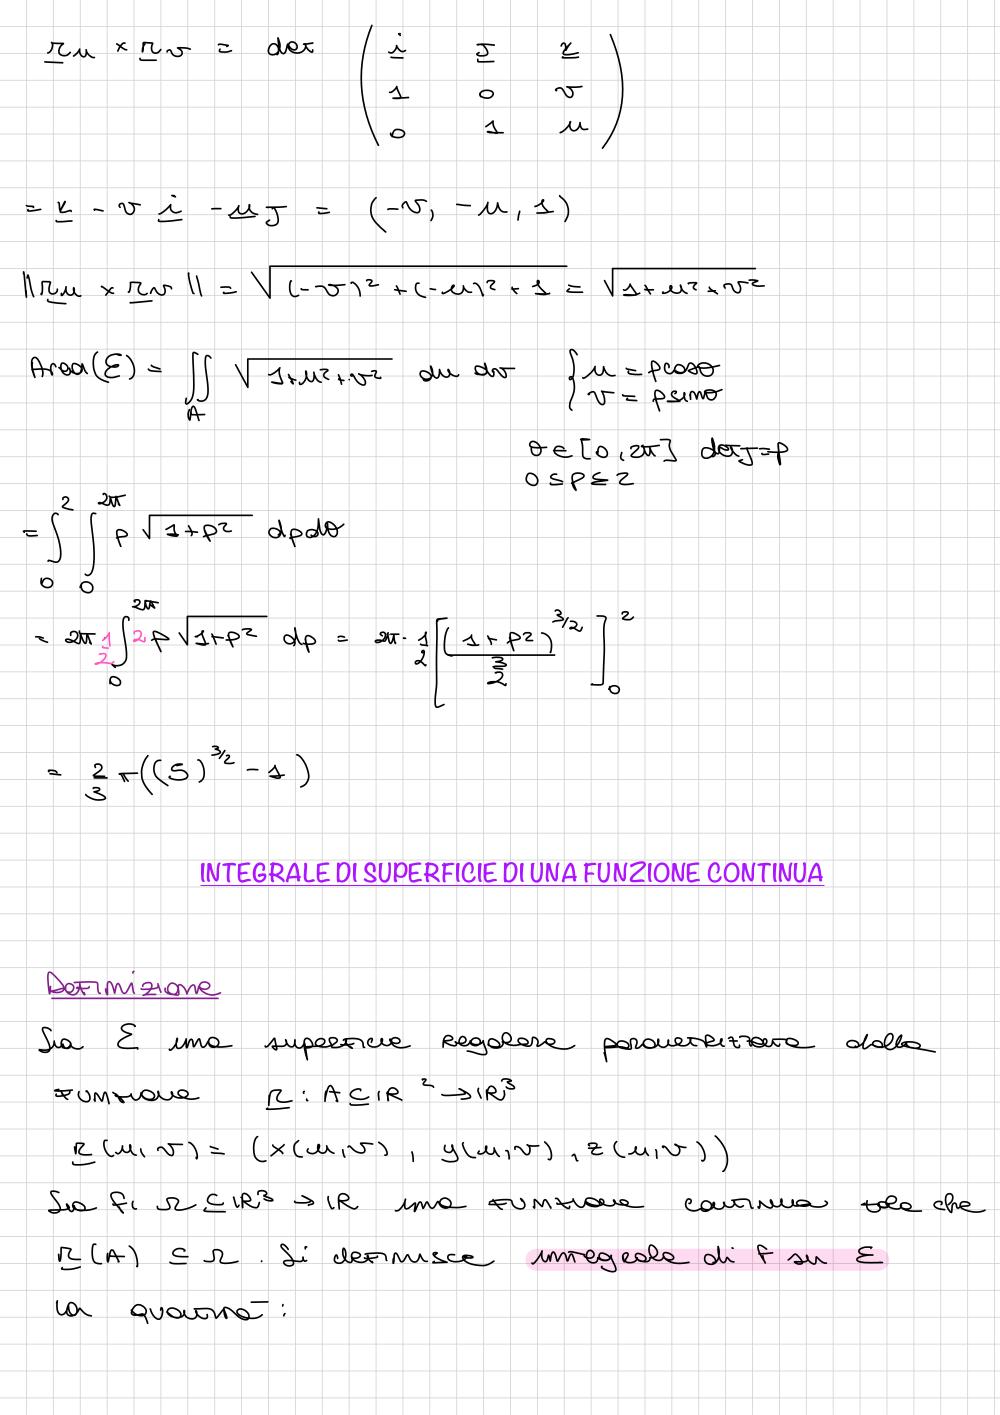 r̲u × r̲v = det ( i̲ J̲ k̲
1 0 v
0 1 u )
= k̲ - v i̲ - u̲ J = (-v, -u, 1)
||r̲u × r̲v|| = √((-v)² + (-u)² + 1) = √(1+u²+v²)
Area(Σ) = ∬_A √(1+u²+v²) du dv { u = ρcosθ
v = ρsinθ
θ ∈ [0, 2π] det J = ρ
0 ≤ ρ ≤ 2
= ∫₀² ∫₀^2π ρ √(1+ρ²) dρdθ
= 2π 1/2 ∫₀^2π 2ρ √(1+ρ²) dρ = 2π · 1/2 [ (1+ρ²)^3/2 / (3/2) ]₀²
= 2/3 π((5)^3/2 - 1)
INTEGRALE DI SUPERFICIE DI UNA FUNZIONE CONTINUA
Definizione
Sia Σ una superficie regolare parametrizzata dalla
funzione r̲ : A ⊆ ℝ² → ℝ³
r̲(u, v) = (x(u,v), y(u,v), z(u,v))
Sia f: Ω ⊆ ℝ³ → ℝ una funzione continua tale che
r̲(A) ⊆ Ω. Si definisce integrale di f su Σ
la quantità: